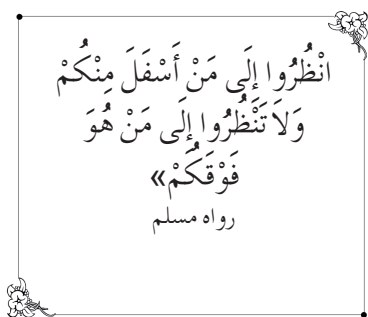 انْظُرُوا إِلَى مَنْ أَسْفَلَ مِنْكُمْ
وَلاَ تَنْظُرُوا إِلَى مَنْ هُوَ
فَوْقَكُمْ»
رواه مسلم